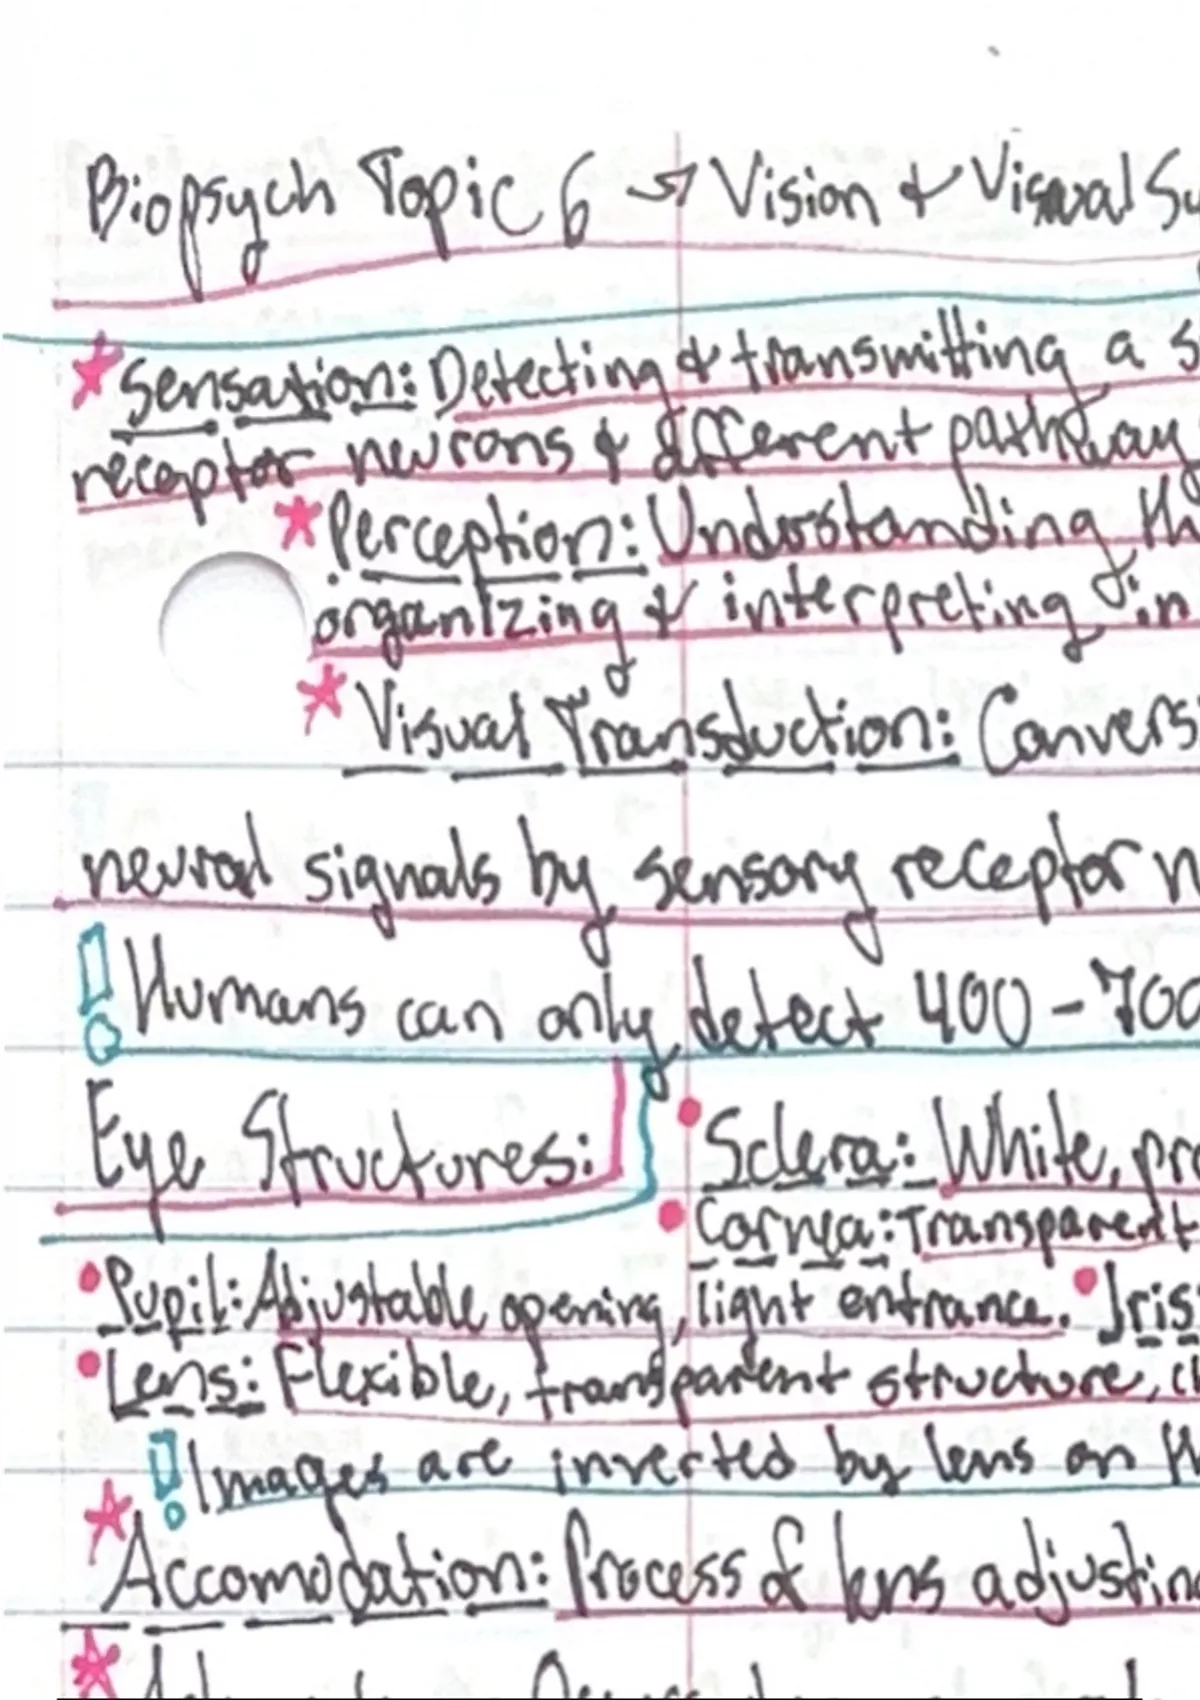 Biopsych Topic 6 → Vision & Visual Sy
Sensation: Detecting & transmitting a s
receptor neurons & different pathway
Perception: Understanding th
organizing & interpreting in
Visual Transduction: Convers
neural signals by sensory receptor n
Humans can only detect 400 - 700
Eye Structures:
Sclera: White, pro
Cornea: Transparent
Pupil: Adjustable opening, light entrance. Iris:
Lens: Flexible, transparent structure, ch
Images are inverted by lens on th
Accomodation: Process of lens adjusting